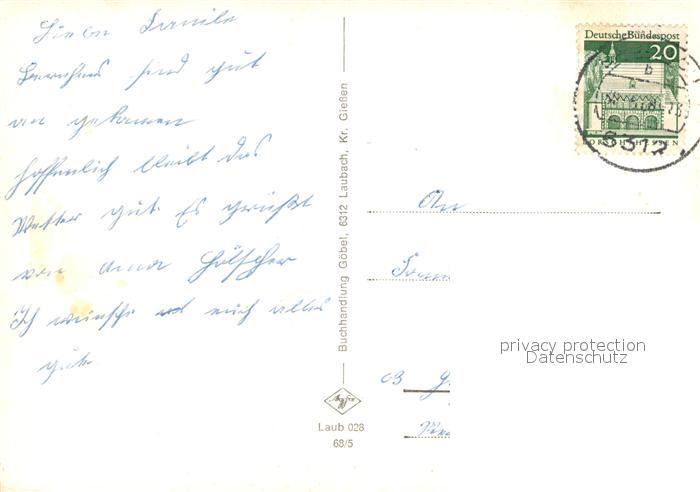 Liebe Familie
sind gut
an gekomen
hoffenlich bleibt das
Wetter gut. Es grüsst
von Oma Hölscher
Ich wünsche euch alles
gute
Buchhandlung Göbel, 6312 Laubach, Kr. Gießen
Laub 028
68/5
Deutsche Bundespost
20
LORSCH HESSEN
631
An
privacy protection
Datenschutz